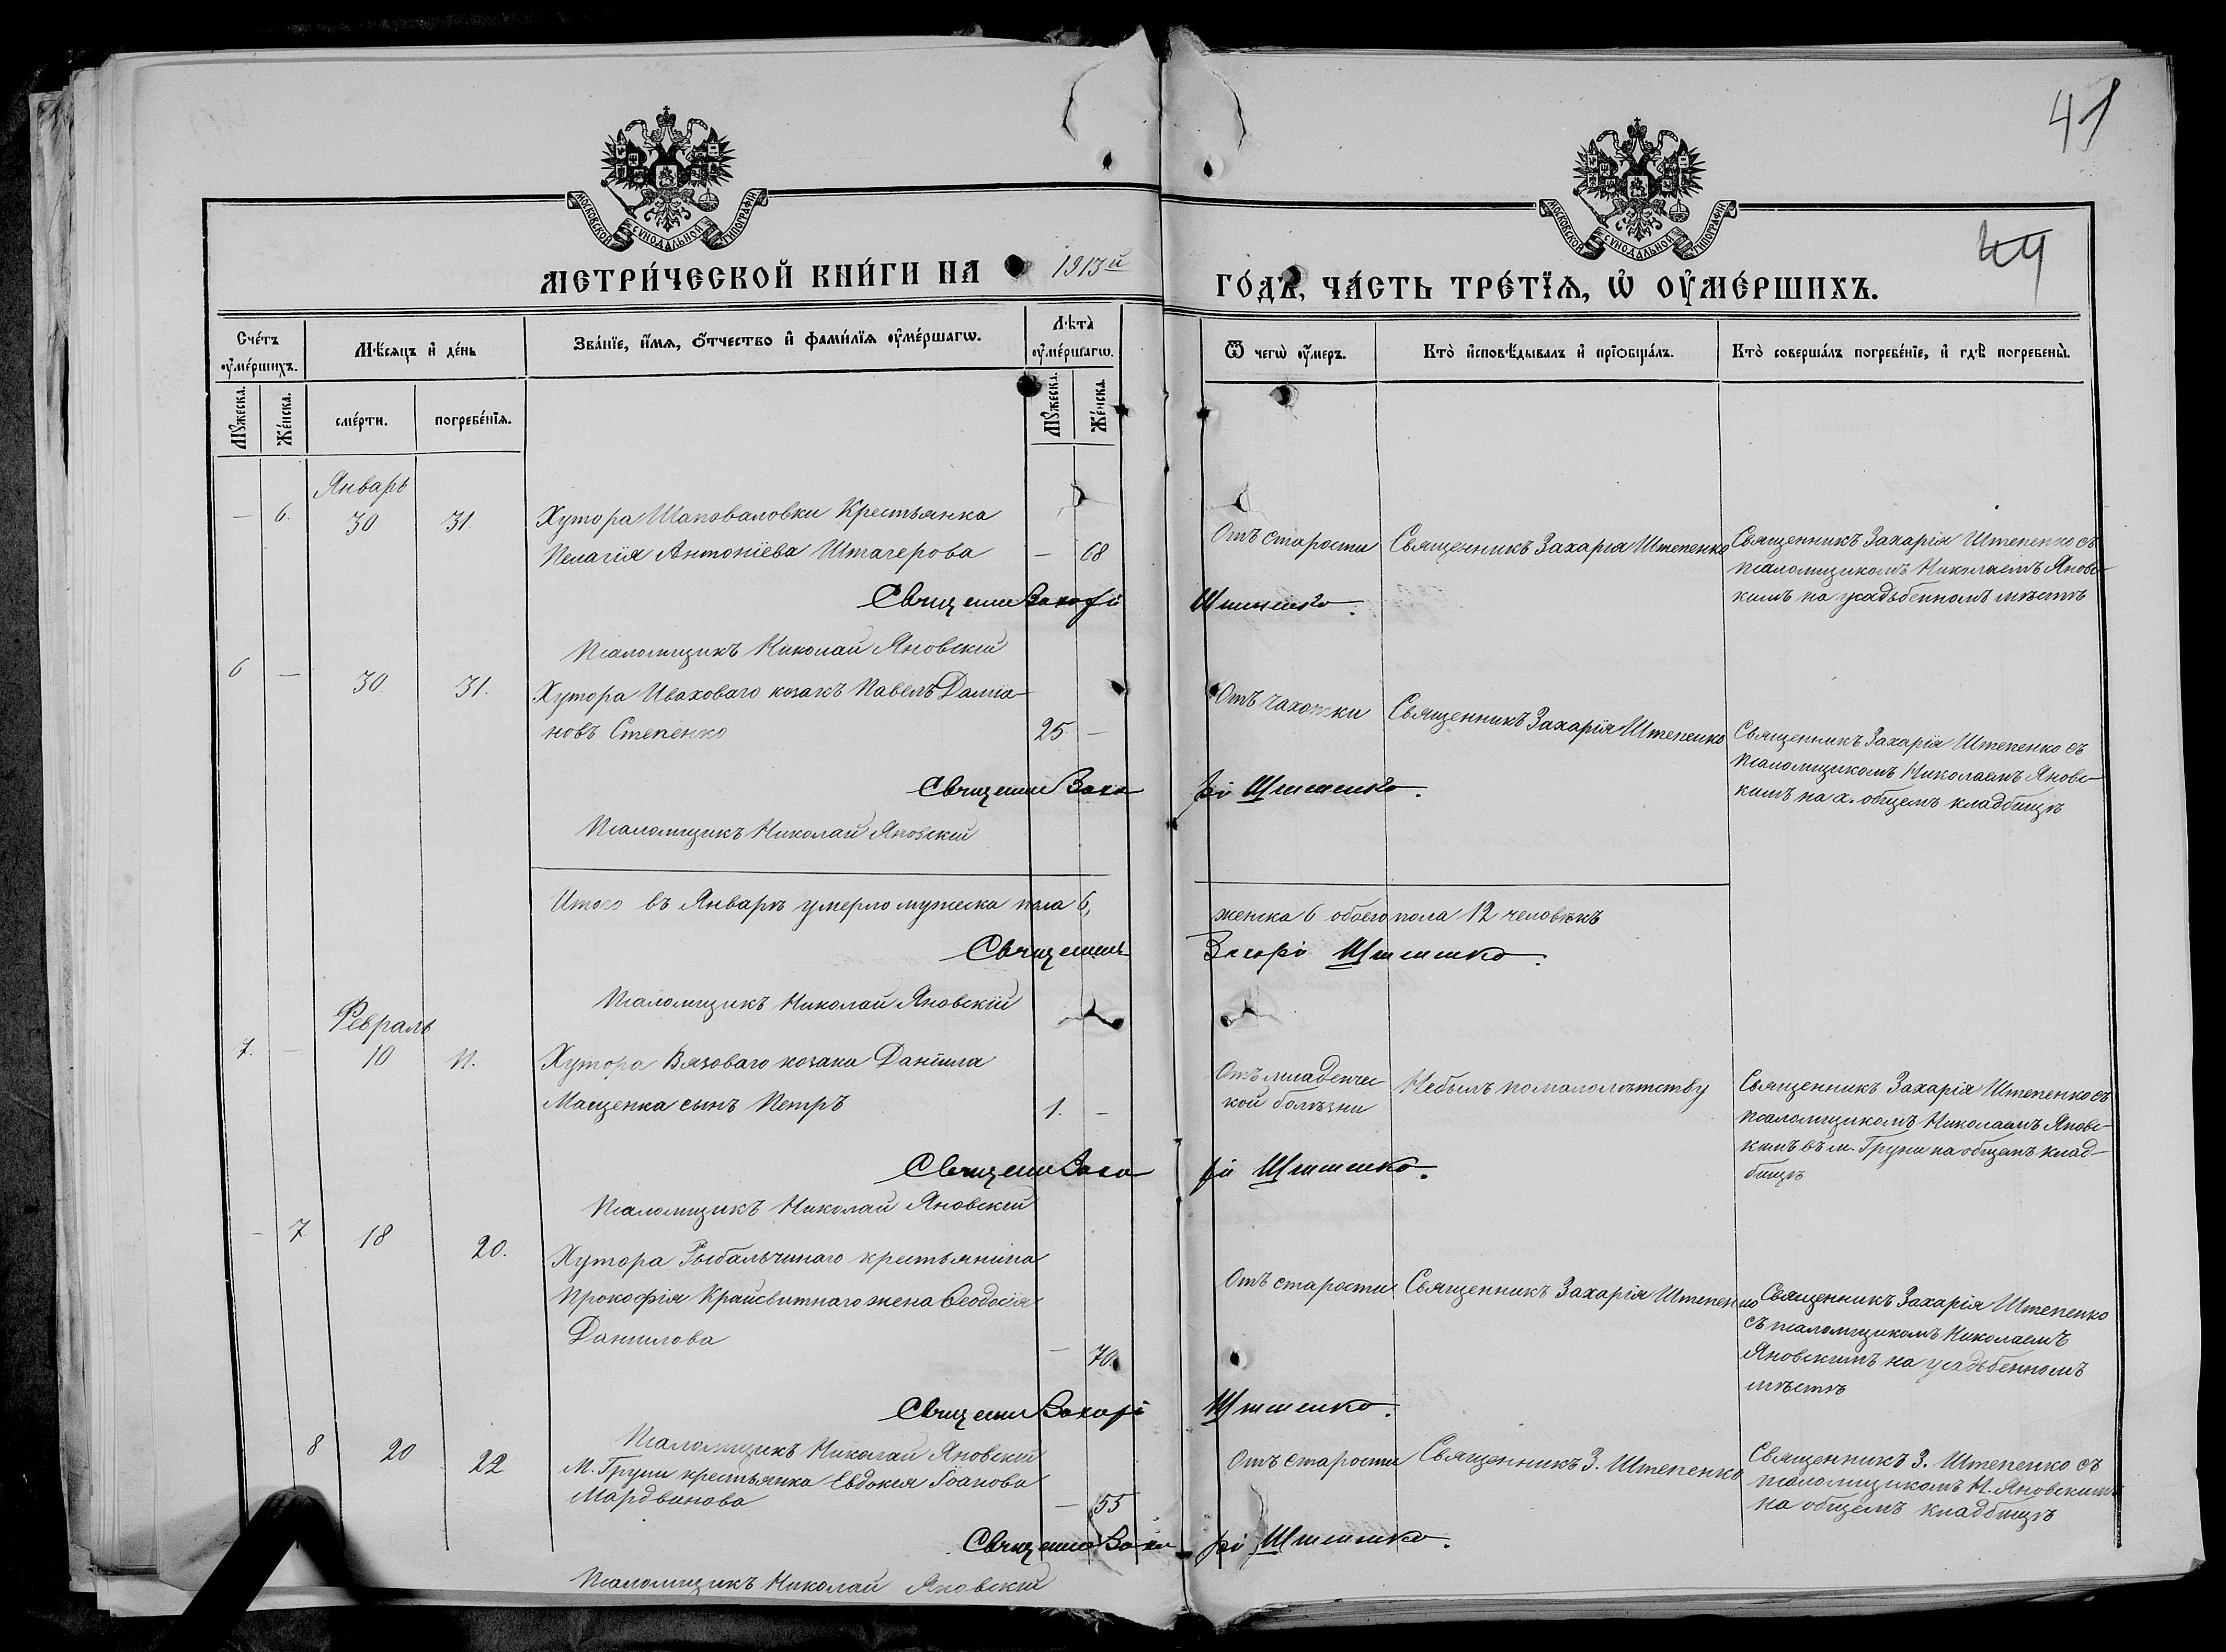 41
44
МОСКОВСКОЙ СѴНОДАЛЬНОЙ ТИПОГРАФІИ
МОСКОВСКОЙ СѴНОДАЛЬНОЙ ТИПОГРАФІИ
МЕТРИ́ЧЕСКОЙ КНИ́ГИ НА 1913й ГО́ДЪ, ЧА́СТЬ ТРЕ́ТЇѦ, Ѡ҆ ОУ҆МЕ́РШИХЪ.
Сче́тъ оу҆ме́ршихъ.
Мꙋжеска.
Же́нска.
Мѣ́сяцъ и҆ де́нь
сме́рти.
погребе́нїѧ.
Зва́нїе, и҆́мѧ, ѻ҆́тчество и҆ фами́лїѧ оу҆ме́ршагѡ.
Лѣ́та оу҆ме́ршагѡ.
Мꙋжеска.
Же́нска.
Ѿ чегѡ̀ оу҆́меръ.
Кто̀ и҆сповѣ́дывалъ и҆ прїѡбща́лъ.
Кто̀ соверша́лъ погребе́нїе, и҆ гдѣ̀ погребены̀.
Январь
— 6. 30 31 Хутора Шаповаловки Крестьянка
Пелагія Антоніева Штагерова — 68
Отъ старости
Священникъ Захарія Штепенко
Священникъ Захарія Штепенко съ
псаломщикомъ Николаемъ Яновс-
кимъ на усадьбенномъ мѣстѣ
Священн Захарі Штепенко.
Псаломщикъ Николай Яновскій
6 — 30 31. Хутора Иваховаго козакъ Павелъ Даміа-
новъ Степенко 25 —
Отъ чахотки
Священникъ Захарія Штепенко
Священникъ Захарія Штепенко съ
псаломщикомъ Николаемъ Яновс-
кимъ на х. общемъ кладбищѣ
Священн Захарі Штепенко.
Псаломщикъ Николай Яновскій
Итого въ Январѣ умерло мужеска пола 6, женска 6 обоего пола 12 человѣкъ
Священн Захарі Штепенко.
Псаломщикъ Николай Яновскій
Февраль
7. — 10 11. Хутора Вязоваго козака Даніила
Мащенка сынъ Петръ 1. —
Отъ младенчес
кой болѣзни
Небылъ помалолѣтству
Священникъ Захарія Штепенко съ
псаломщикомъ Николаемъ Яновс-
кимъ въ м. Груни на общемъ клад-
бищѣ
Священн Захарі Штепенко.
Псаломщикъ Николай Яновскій
— 7 18 20. Хутора Рыбальчинаго крестьянина
Прокофія Крайсвитнаго жена Ѳеодосія
Данилова — 70
Отъ старости
Священникъ Захарія Штепенко
Священникъ Захарія Штепенко
съ псаломщикомъ Николаемъ
Яновскимъ на усадьбенномъ
мѣстѣ
Священн Захарі Штепенко.
Псаломщикъ Николай Яновскій
8 20 22 М. Груни крестьянка Евдокія Іоанова
Мардвинова — 55
Отъ старости
Священникъ З. Штепенко
Священникъ З. Штепенко съ
псаломщикомъ Н. Яновскимъ
на общемъ кладбищѣ
Священн Захарі Штепенко.
Псаломщикъ Николай Яновскій